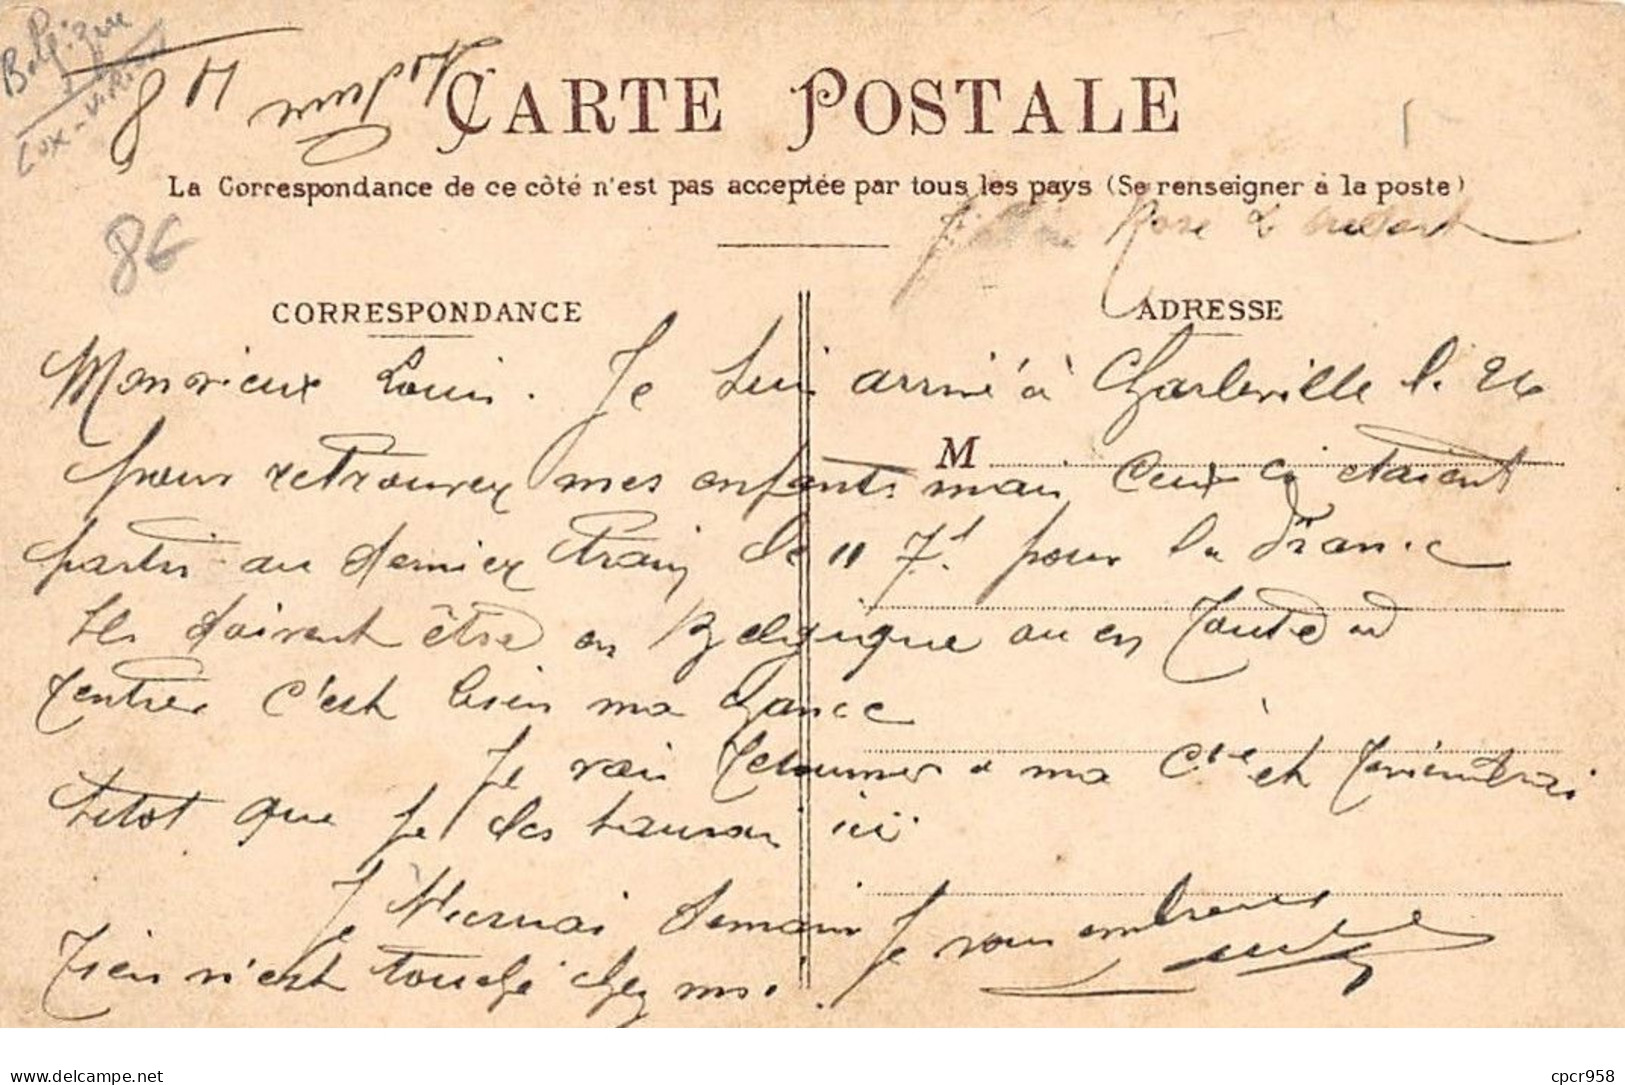 Belgique
Lux - Virton
CARTE POSTALE
La Correspondance de ce côté n'est pas acceptée par tous les pays (Se renseigner à la poste)
Rose
86
CORRESPONDANCE
ADRESSE
Mon vieux Louis. Je suis arrivé à Charleville le 26
M
pour retrouver mes enfants mais ceux ci étaient
partis au dernier train de 11 7.^ pour la France
Ils doivent être en Belgique ou en
rentrer c'est bien ma chance
Je vais retourner a ma Cie et reviendrai
sitot que je les saurai ici
Je demain Je vous embrasse
rien n'est touché chez moi.
cpcr958